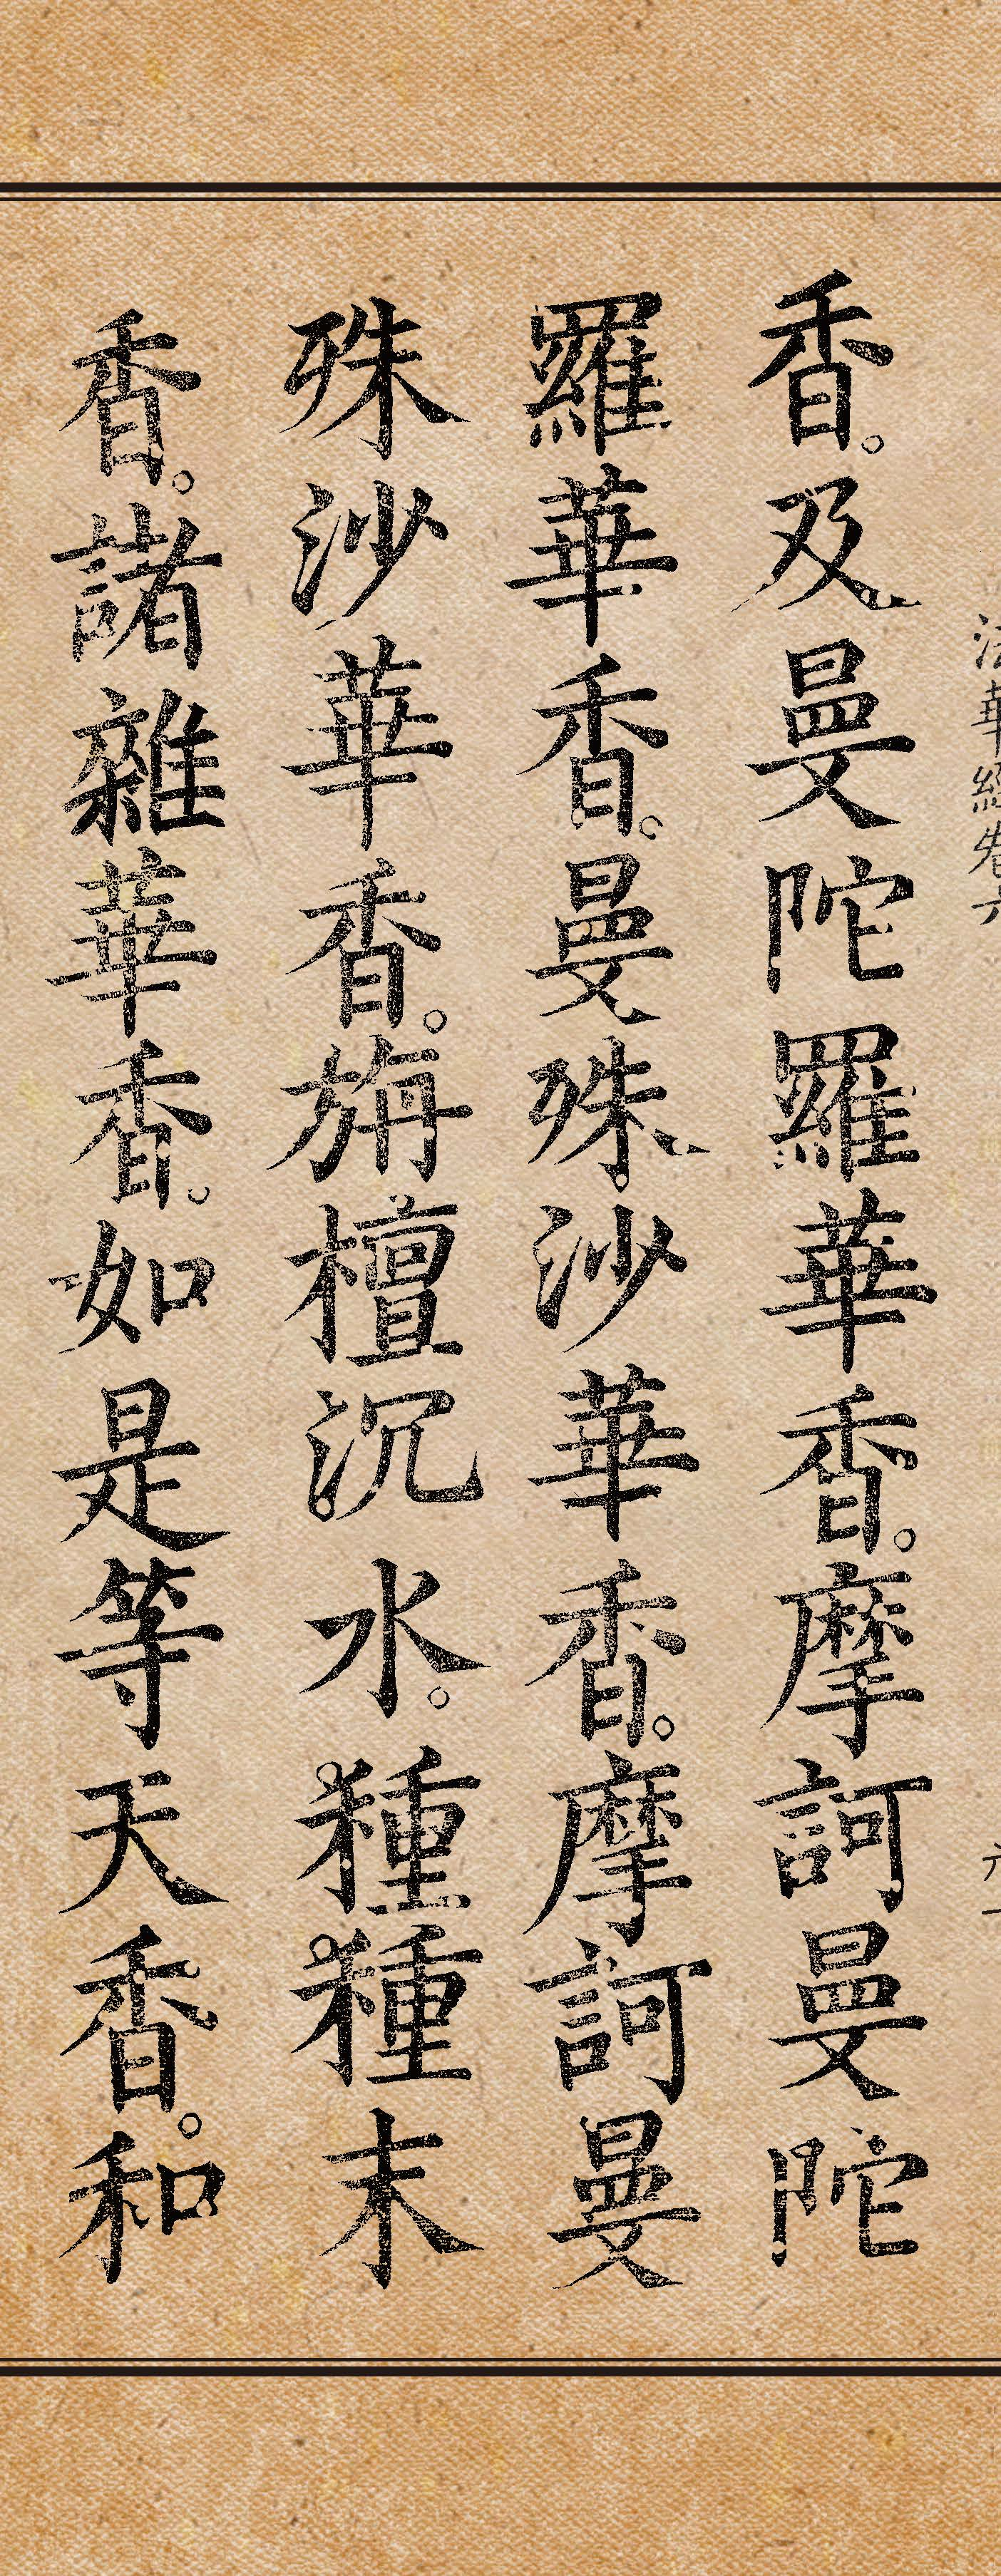 法華經卷六
香。及曼陀羅華香。摩訶曼陀
羅華香。曼殊沙華香。摩訶曼
殊沙華香。旃檀沉水。種種末
香。諸雜華香。如是等天香。和